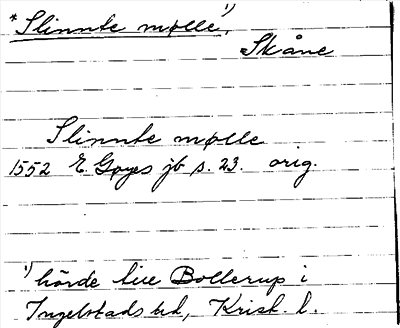 *Slinnte mølle, 1)
Skåne
Slinnte mølle
1552 E. Gøyes jb s. 23. orig.
1) hörde till Bollerup i
Ingelstads hd, Krist. l.